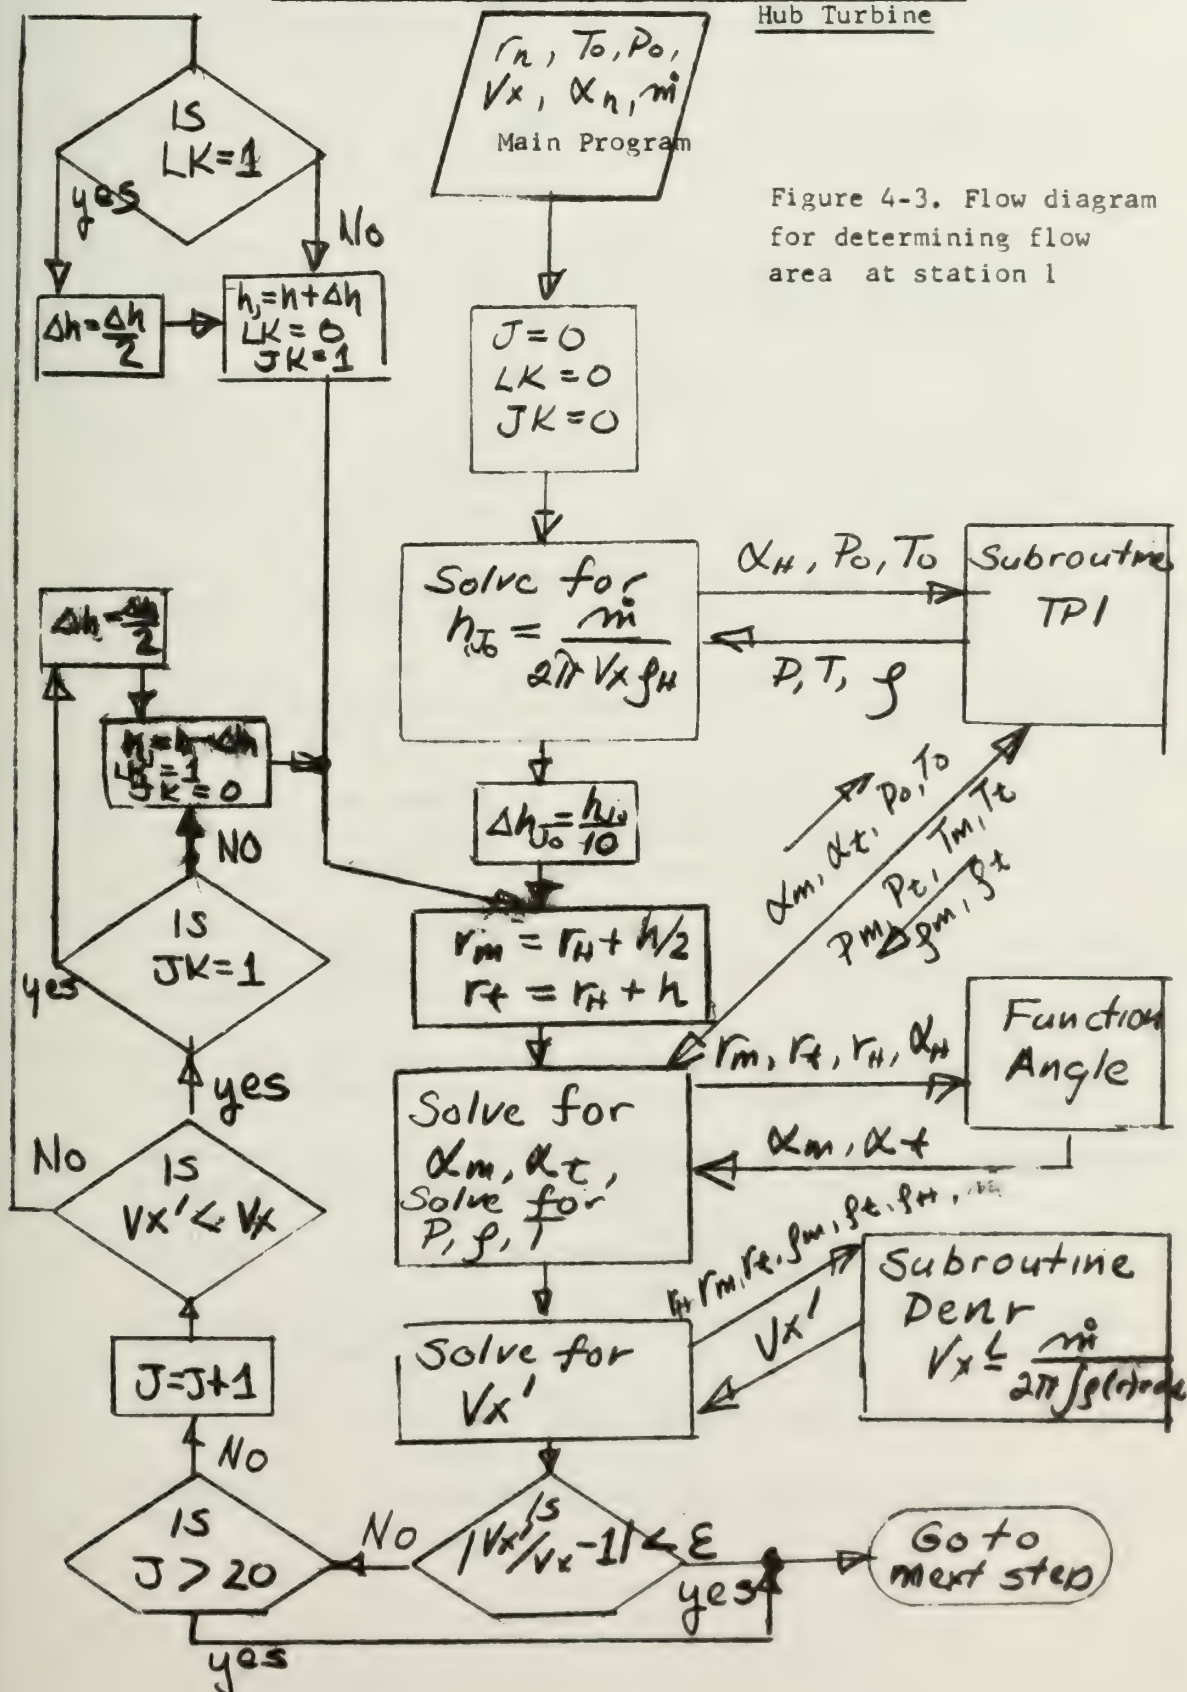 Hub Turbine
rₙ, T₀, P₀,
Vx, αₙ, ṁ
Main Program
Figure 4-3. Flow diagram
for determining flow
area at station 1
IS
LK=1
yes
No
Δh=Δh/2
hⱼ=h+Δh
LK=0
JK=1
J=0
LK=0
JK=0
Solve for
h_J₀ = ṁ/(2π Vx ρ_H)
α_H, P₀, T₀
P, T, ρ
Subroutine
TP1
Δh=Δh/2
hⱼ=h-Δh
LK=1
JK=0
Δh_J₀=h_J₀/10
αm, αt, P₀, T₀
Pm, Pt, Tm, Tt
ρm, ρt
NO
IS
JK=1
yes
rm = r_H + h/2
rt = r_H + h
rm, rt, r_H, α_H
Function
Angle
αm, αt
Solve for
αm, αt,
Solve for
P, ρ, T
yes
No
IS
Vx' < Vx
r_H, rm, rt, ρm, ρt, ρ_H,
Vx'
Subroutine
Denr
Vx' = ṁ/(2π∫ρ(r)rdr
Solve for
Vx'
J=J+1
No
IS
J > 20
No
IS
|Vx'/Vx -1| < ε
yes
yes
Go to
next step